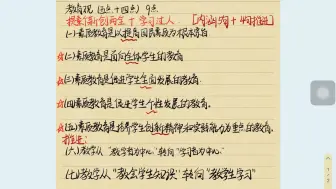 教育观 (五点+四点) 9点
提素促新创两全 + 学习法人 [内涵+4句推进]
(一)素质教育是以提高国民素质为根本宗旨
☆(二)素质教育是面向全体学生的教育
☆(三)素质教育是促进学生全面发展的教育.
☆(四)素质教育是促进学生个性发展的教育.
☆(五)素质教育是培养学生创新精神和实践能力为重点的教育.
推进:
(六)教学从"教学者为中心"转向"学习者为中心"
(七)教学从"教会学生知识"转向"教学生学习"